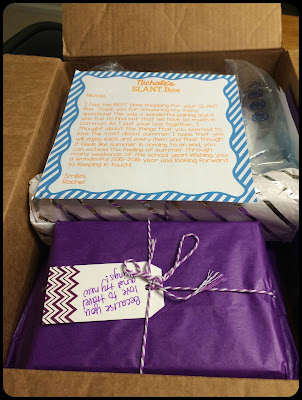 Nichole's
SLANT Box
Nichole,
I had the BEST time shopping for your SLANT
Box. Thank you for answering my many
questions! This was a wonderful pairing and it
was fun to find out that we have so much in
common. As I put your box together, I
thought about the things that you seemed to
love the most about summer. I hope that you
will enjoy each and every item and that though
it feels like summer is coming to an end, you
can extend the feeling of summer through
many weekends of the school year! Wishing you
a wonderful 2015-2016 year and looking forward
to keeping in touch!
Smiles,
Rachel
Because you
love to travel
and try new
things!